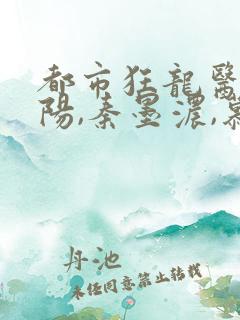 都市狂龍醫
陽,秦墨濃,慕
丹池
未经同意禁止转载